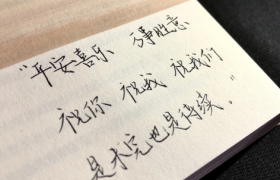 “平安喜乐 万事胜意
祝你 祝我 祝我们
是未完也是待续.”